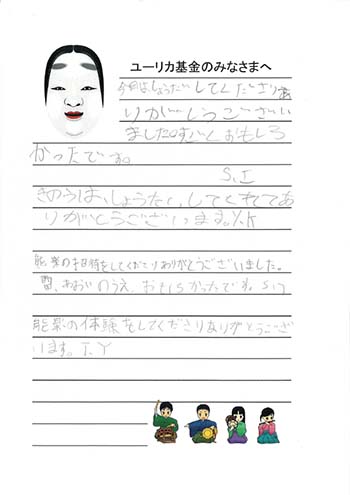 ユーリカ基金のみなさまへ
今日はしょうたいしてくださりあ
りがとうございい
ました。すごくおもしろ
かったです。
S.I
きのうは、しょうたいしてくれてあ
りがとうございます。Y.K
能楽の招待をしてくださりありがとうございました。
のうえ、おもしろかったです。S.I
能楽の体験をしてくださりありがとうござ
います。T.Y